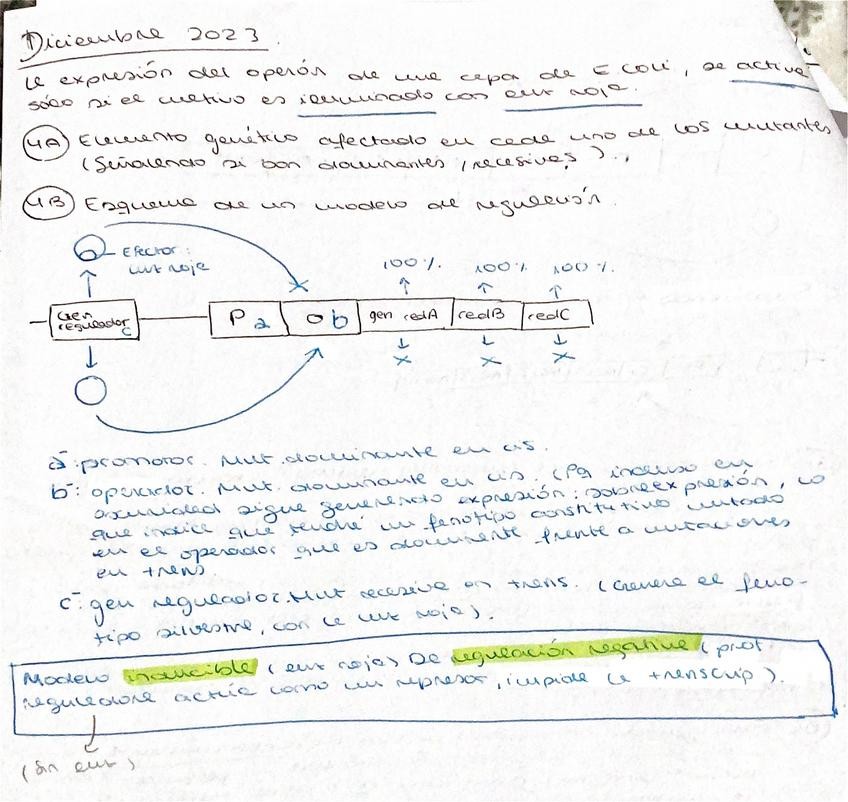 Diciembre 2023.
La expresión del operón de una cepa de E.Coli, se activa
sólo si el cultivo es iluminado con luz roja.
4A Elemento genético afectado en cada uno de los mutantes
(Señalando si son dominantes, recesivas).
4B Esquema de un modelo de regulación.
Efector:
luz roja
100% 100% 100%.
Gen regulador c P a O b gen redA redB redC
a⁻: promotor. Mut. dominante en cis.
b⁻: operador. Mut. dominante en cis. (Pq incluso en
oscuridad sigue generando expresión: sobreexpresión, lo
que indica que tendré un fenotipo constitutivo mutado
en el operador que es dominante frente a mutaciones
en trans.
c⁻: gen regulador. Mut recesiva en trans. (Genera el feno-
tipo silvestre, con la luz roja).
Modelo inducible (luz roja) De regulación negativa (prot.
reguladora actúa como un represor, impide la transcrip).
(Sin luz)